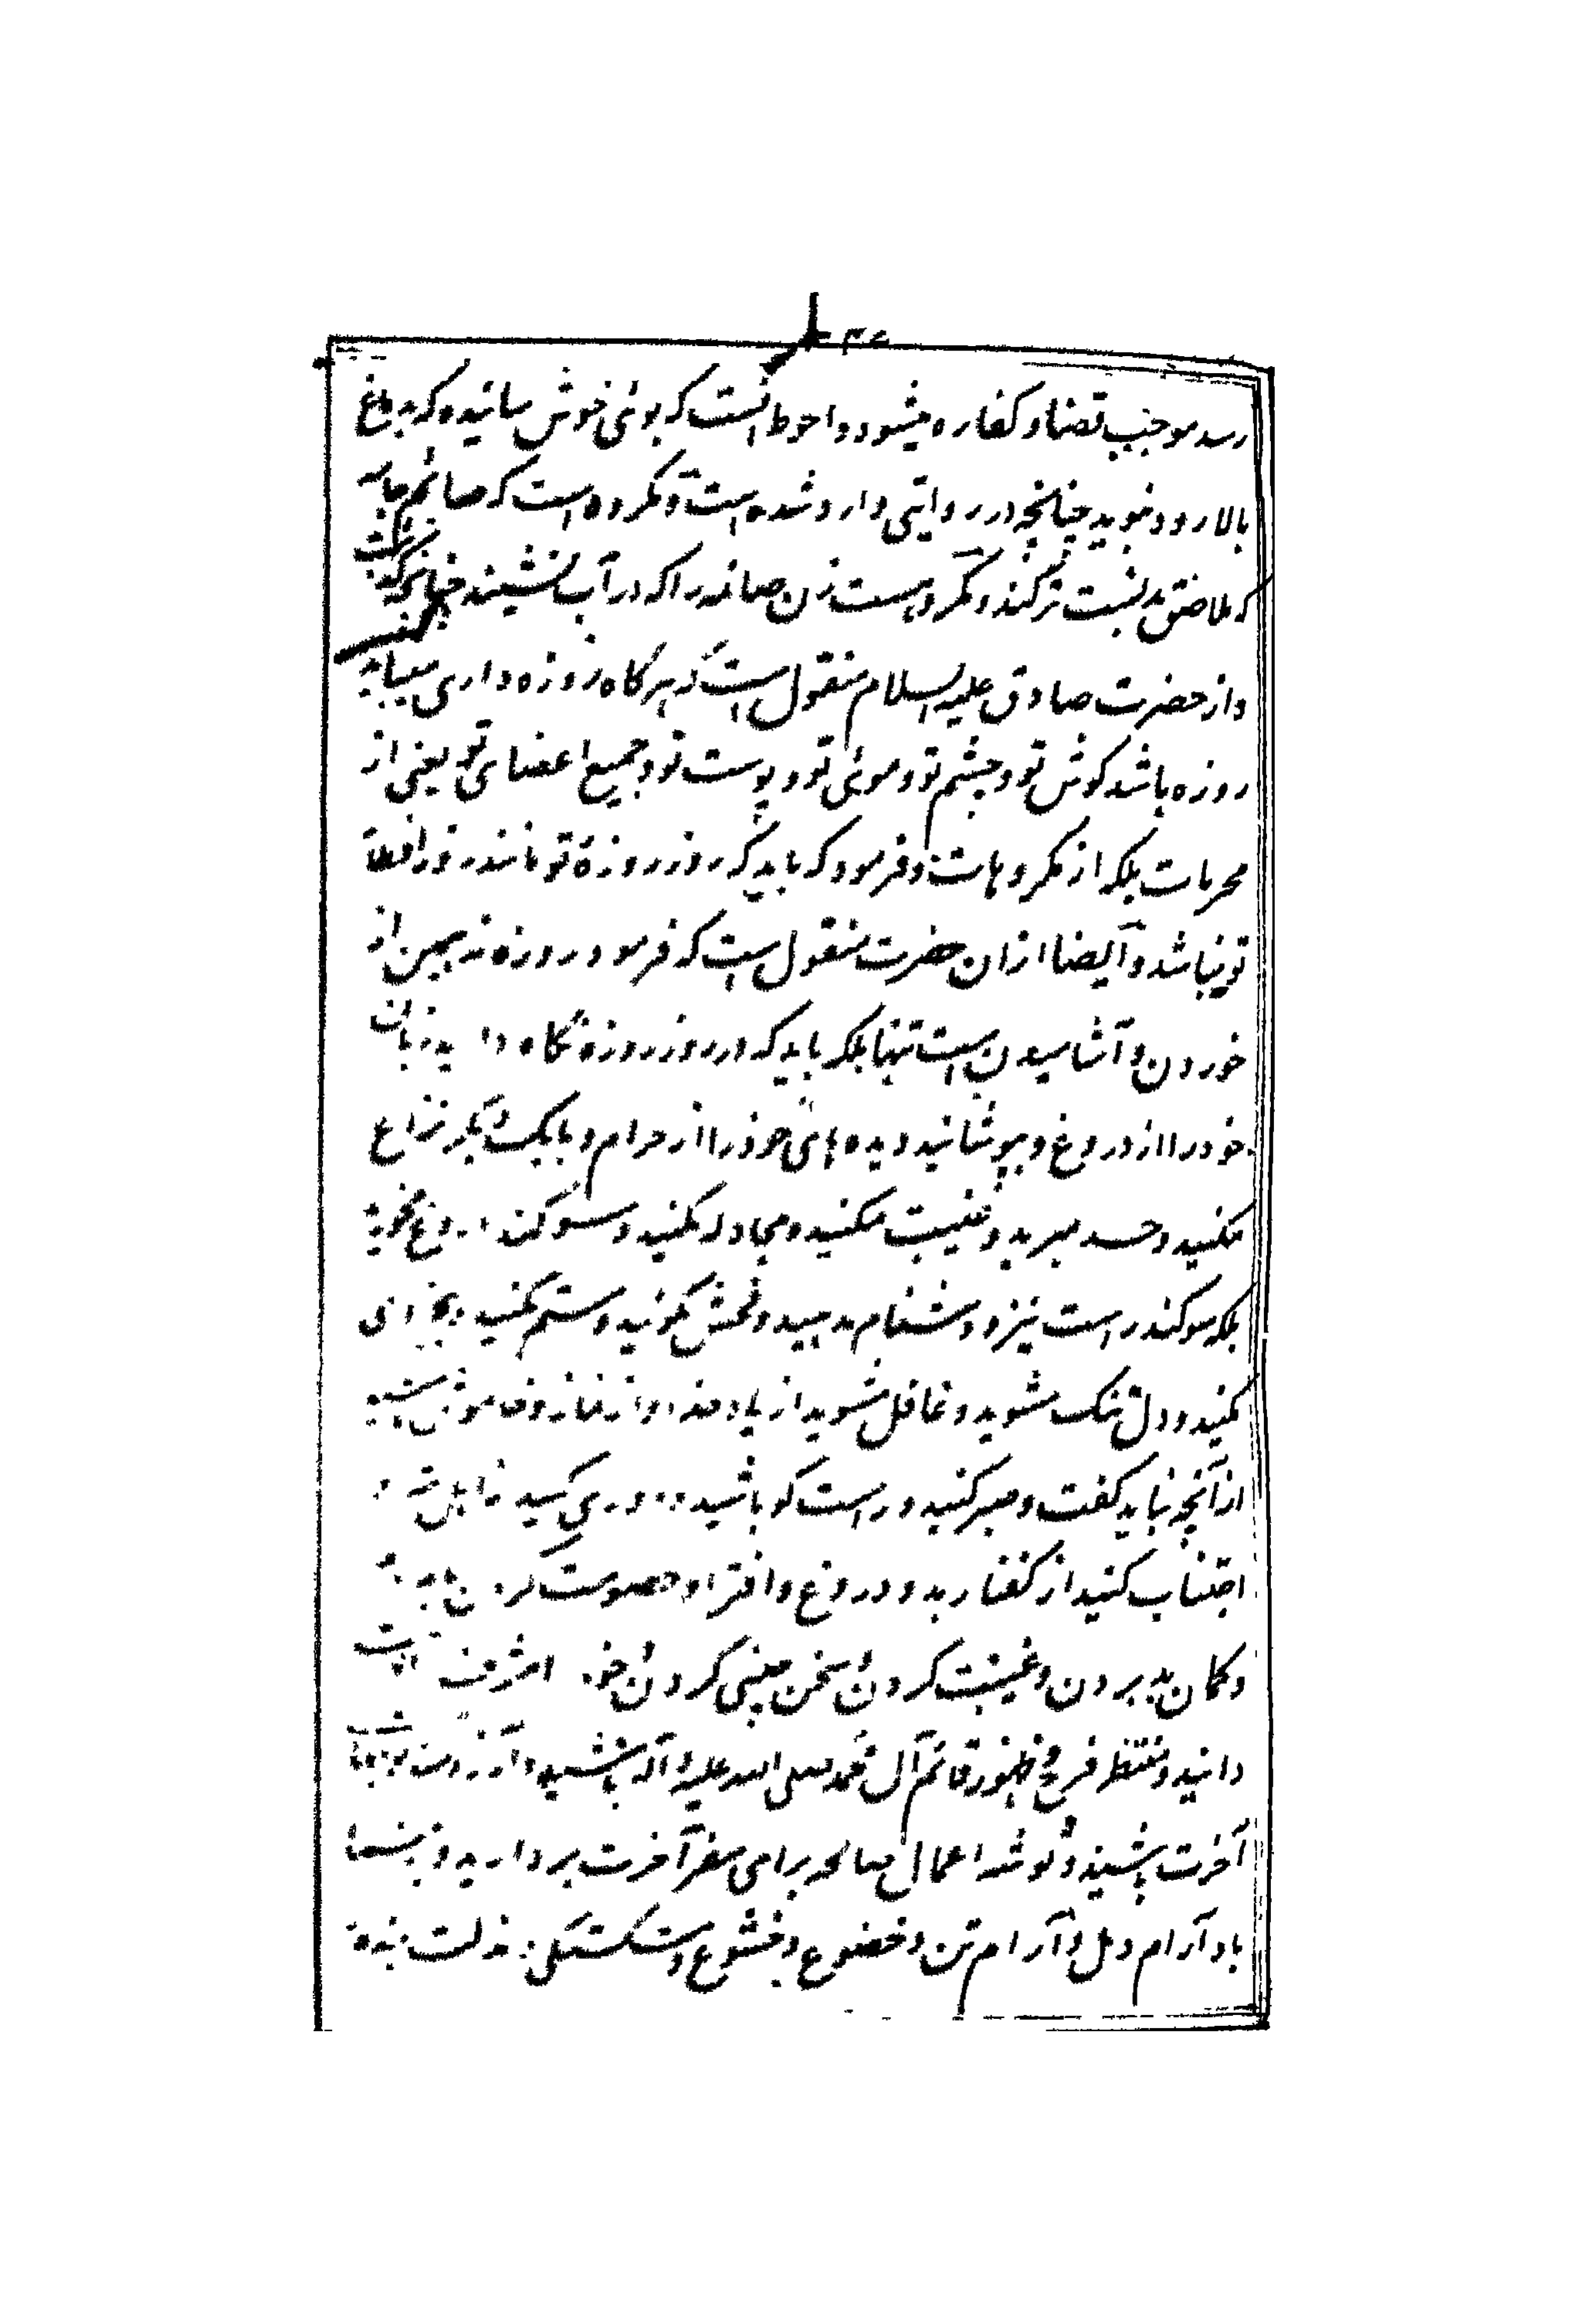 رسد موجب قضا و کفاره میشود و احوط آنست که بوی خوش سائیده که بدماغ
بالا رود نبوید چنانچه در روایتی وارد شده است و مکروه است که صائم جامه
که ملاصق بدنست تر کند و مکروهست زن صائمه را که در آب نشیند چنانچه گذشت
و از حضرت صادق علیه السلام منقول است که هر گاه روزه داری میباید
روزه باشد گوش تو و چشم تو و موی تو و پوست تو و جمیع اعضای تو یعنی از
محرمات بلکه از مکروهات و فرمود که باید که روز روزهٔ تو مانند روز افطار
تو نباشد و ایضا از ان حضرت منقول است که فرمود روزه نه همین از
خوردن و آشامیدن است تنها بلکه باید که در روز روزه نگاه دارید زبان
خود را از دروغ و بپوشانید دیده های خود را از حرام و با یکدیگر نزاع
مکنید و حسد مبرید و غیبت مکنید و مجادله مکنید و سوگند دروغ مخورید
بلکه سوگند راست نیز و دشنام مدهید و فحش مگوئید و ستم مکنید و بیخردی
مکنید و دل تنگ مشوید و غافل مشوید از یاد خدا و از نماز و خاموش باشید
از آنچه نباید گفت و صبر کنید و راست گو باشید و دوری کنید از اهل شر و
اجتناب کنید از گفتار بد و دروغ و افترا و خصومت کردن
و گمان بد بردن و غیبت کردن و سخن چینی کردن و خود را مشرف آخرت
دانید و منتظر فرج و ظهور قائم آل محمد صلی الله علیه و آله باشید و آرزومند ثوابهای
آخرت باشید و توشه اعمال صالحه برای سفر آخرت بردارید و بر شما
باد آرام دل و آرام تن و خضوع و خشوع و شکستگی و مذلت بنده